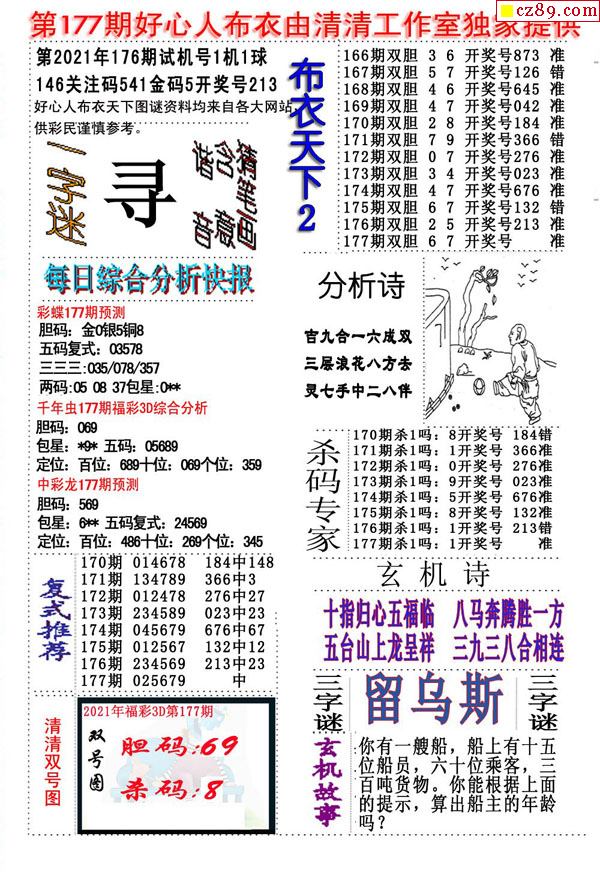 cz89.com
第177期好心人布衣由清清工作室独家提供
第2021年176期试机号1机1球
146关注码541金码5开奖号213
好心人布衣天下图谜资料均来自各大网站,
供彩民谨慎参考。
一字谜
寻
猜笔画
含意
谐音
每日综合分析快报
彩蝶177期预测
胆码: 金0银5铜8
五码复式: 03578
三三三:035/078/357
两码:05 08 37包星:0**
千年虫177期福彩3D综合分析
胆码: 069
包星: *9* 五码: 05689
定位: 百位: 689十位: 069个位: 359
中彩龙177期预测
胆码: 569
包星: 6** 五码复式: 24569
定位: 百位: 486十位: 269个位: 345
复式推荐
170期 014678 184中148
171期 134789 366中3
172期 012478 276中27
173期 234589 023中23
174期 045679 676中67
175期 012567 132中12
176期 234569 213中23
177期 025679 中
清清双号图
2021年福彩3D第177期
双号图
胆码:69
杀码:8
布衣天下2
166期双胆 3 6 开奖号873 准
167期双胆 5 7 开奖号126 错
168期双胆 4 6 开奖号645 准
169期双胆 4 7 开奖号042 准
170期双胆 2 8 开奖号184 准
171期双胆 7 9 开奖号366 错
172期双胆 0 7 开奖号276 准
173期双胆 3 4 开奖号023 准
174期双胆 4 7 开奖号676 准
175期双胆 6 7 开奖号132 错
176期双胆 2 5 开奖号213 准
177期双胆 6 7 开奖号 准
分析诗
百九合一六成双
三层浪花八方去
灵七手中二八伴
杀码专家
170期杀1吗: 8开奖号 184错
171期杀1吗: 1开奖号 366准
172期杀1吗: 0开奖号 276准
173期杀1吗: 9开奖号 023准
174期杀1吗: 5开奖号 676准
175期杀1吗: 8开奖号 132准
176期杀1吗: 1开奖号 213错
177期杀1吗: 1开奖号 准
玄机诗
十指归心五福临 八马奔腾胜一方
五台山上龙呈祥 三九三八合相连
三字谜
留乌斯
三字谜
玄机故事
你有一艘船,船上有十五
位船员,六十位乘客,三
百吨货物。你能根据上面
的提示,算出船主的年龄
吗?